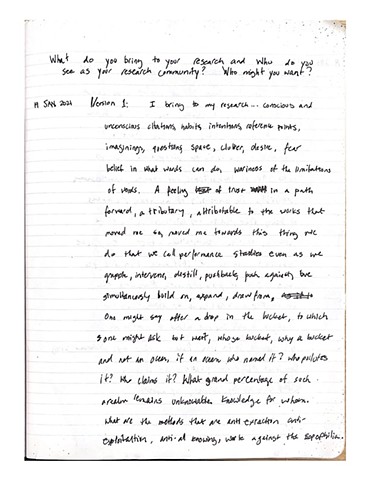 What do you bring to your research and who do you
see as your research community? Who might you want?
14 JAN 2021 Version 1: I bring to my research... conscious and
unconscious citations, habits, intentions, reference points,
imaginings, questions, space, clutter, desire, fear
belief in what words can do, wariness of the limitations
of words. A feeling of trust in a path
forward, a tributary, attributable to the works that
moved me so, moved me towards this thing we
do that we call performance studies even as we
grapple, intervene, distill, pushback, push against, love
simultaneously build on, expand, draw from,
One might say offer a drop in the bucket, to which
one might ask but wait, whose bucket, why a bucket
and not an ocean, if an ocean who named it? who pollutes
it? Who claims it? What grand percentage of such
a realm remains unknowable knowledge for whom.
What are the methods that are anti extraction anti-
exploitation, anti-all knowing, work against the